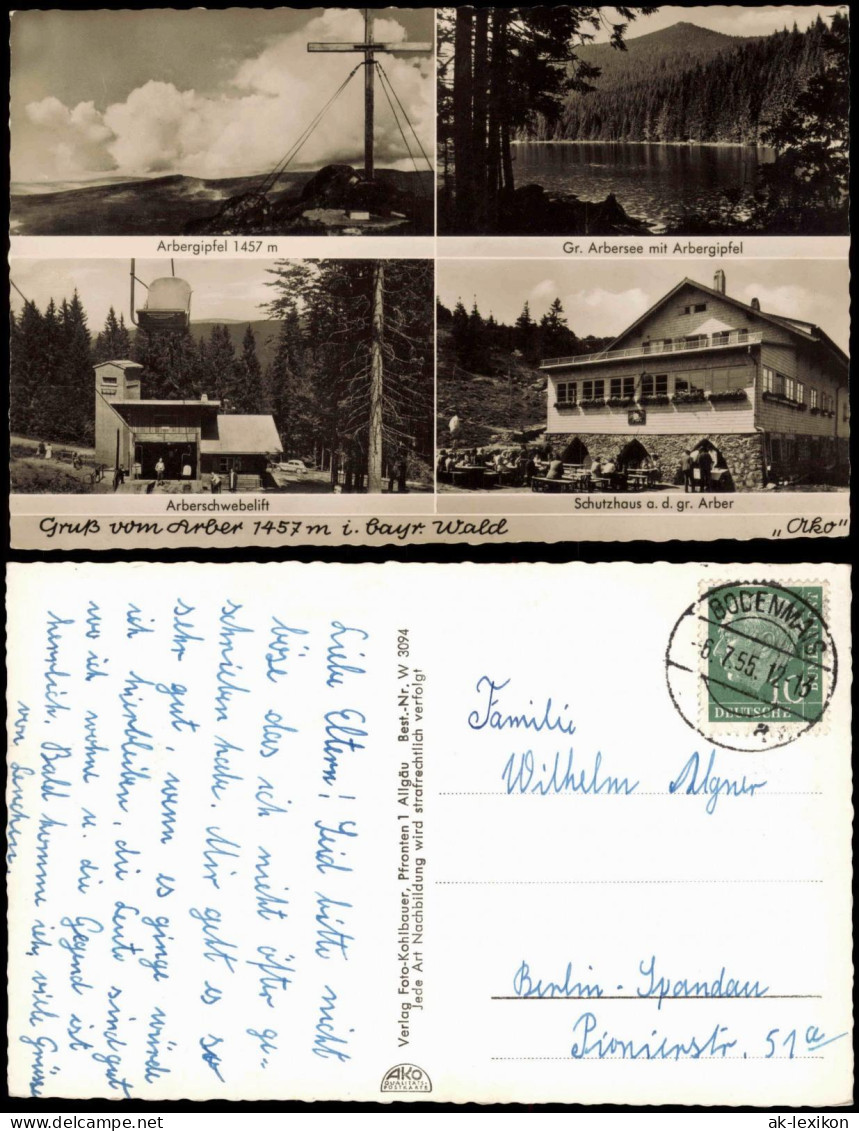 Arbergipfel 1457 m
Gr. Arbersee mit Arbergipfel
Arberschwebelift
Schutzhaus a. d. gr. Arber
Gruß vom Arber 1457 m i. bayr. Wald
„Ako"
Liebe Eltern! Seid bitte nicht
böse das ich nicht öfter ge-
schrieben habe. Mir geht es so
sehr gut, wenn es ginge würde
ich hierbleiben, die Leute sind gut
wo ich wohne u. die Gegend ist
herrlich. Bald komme ich, viele Grüsse
von Lenchen.
Verlag Foto-Kohlbauer, Pfronten 1 Allgäu Best.-Nr. W 3094
Jede Art Nachbildung wird strafrechtlich verfolgt
AKO
QUALITÄTS-
POSTKARTE
BODENMAIS
-6.7.55.12-13
a
10
DEUTSCHE
BUNDESPOST
Familie
Wilhelm Algner
Berlin-Spandau
Pionierstr. 51a
ak-lexikon